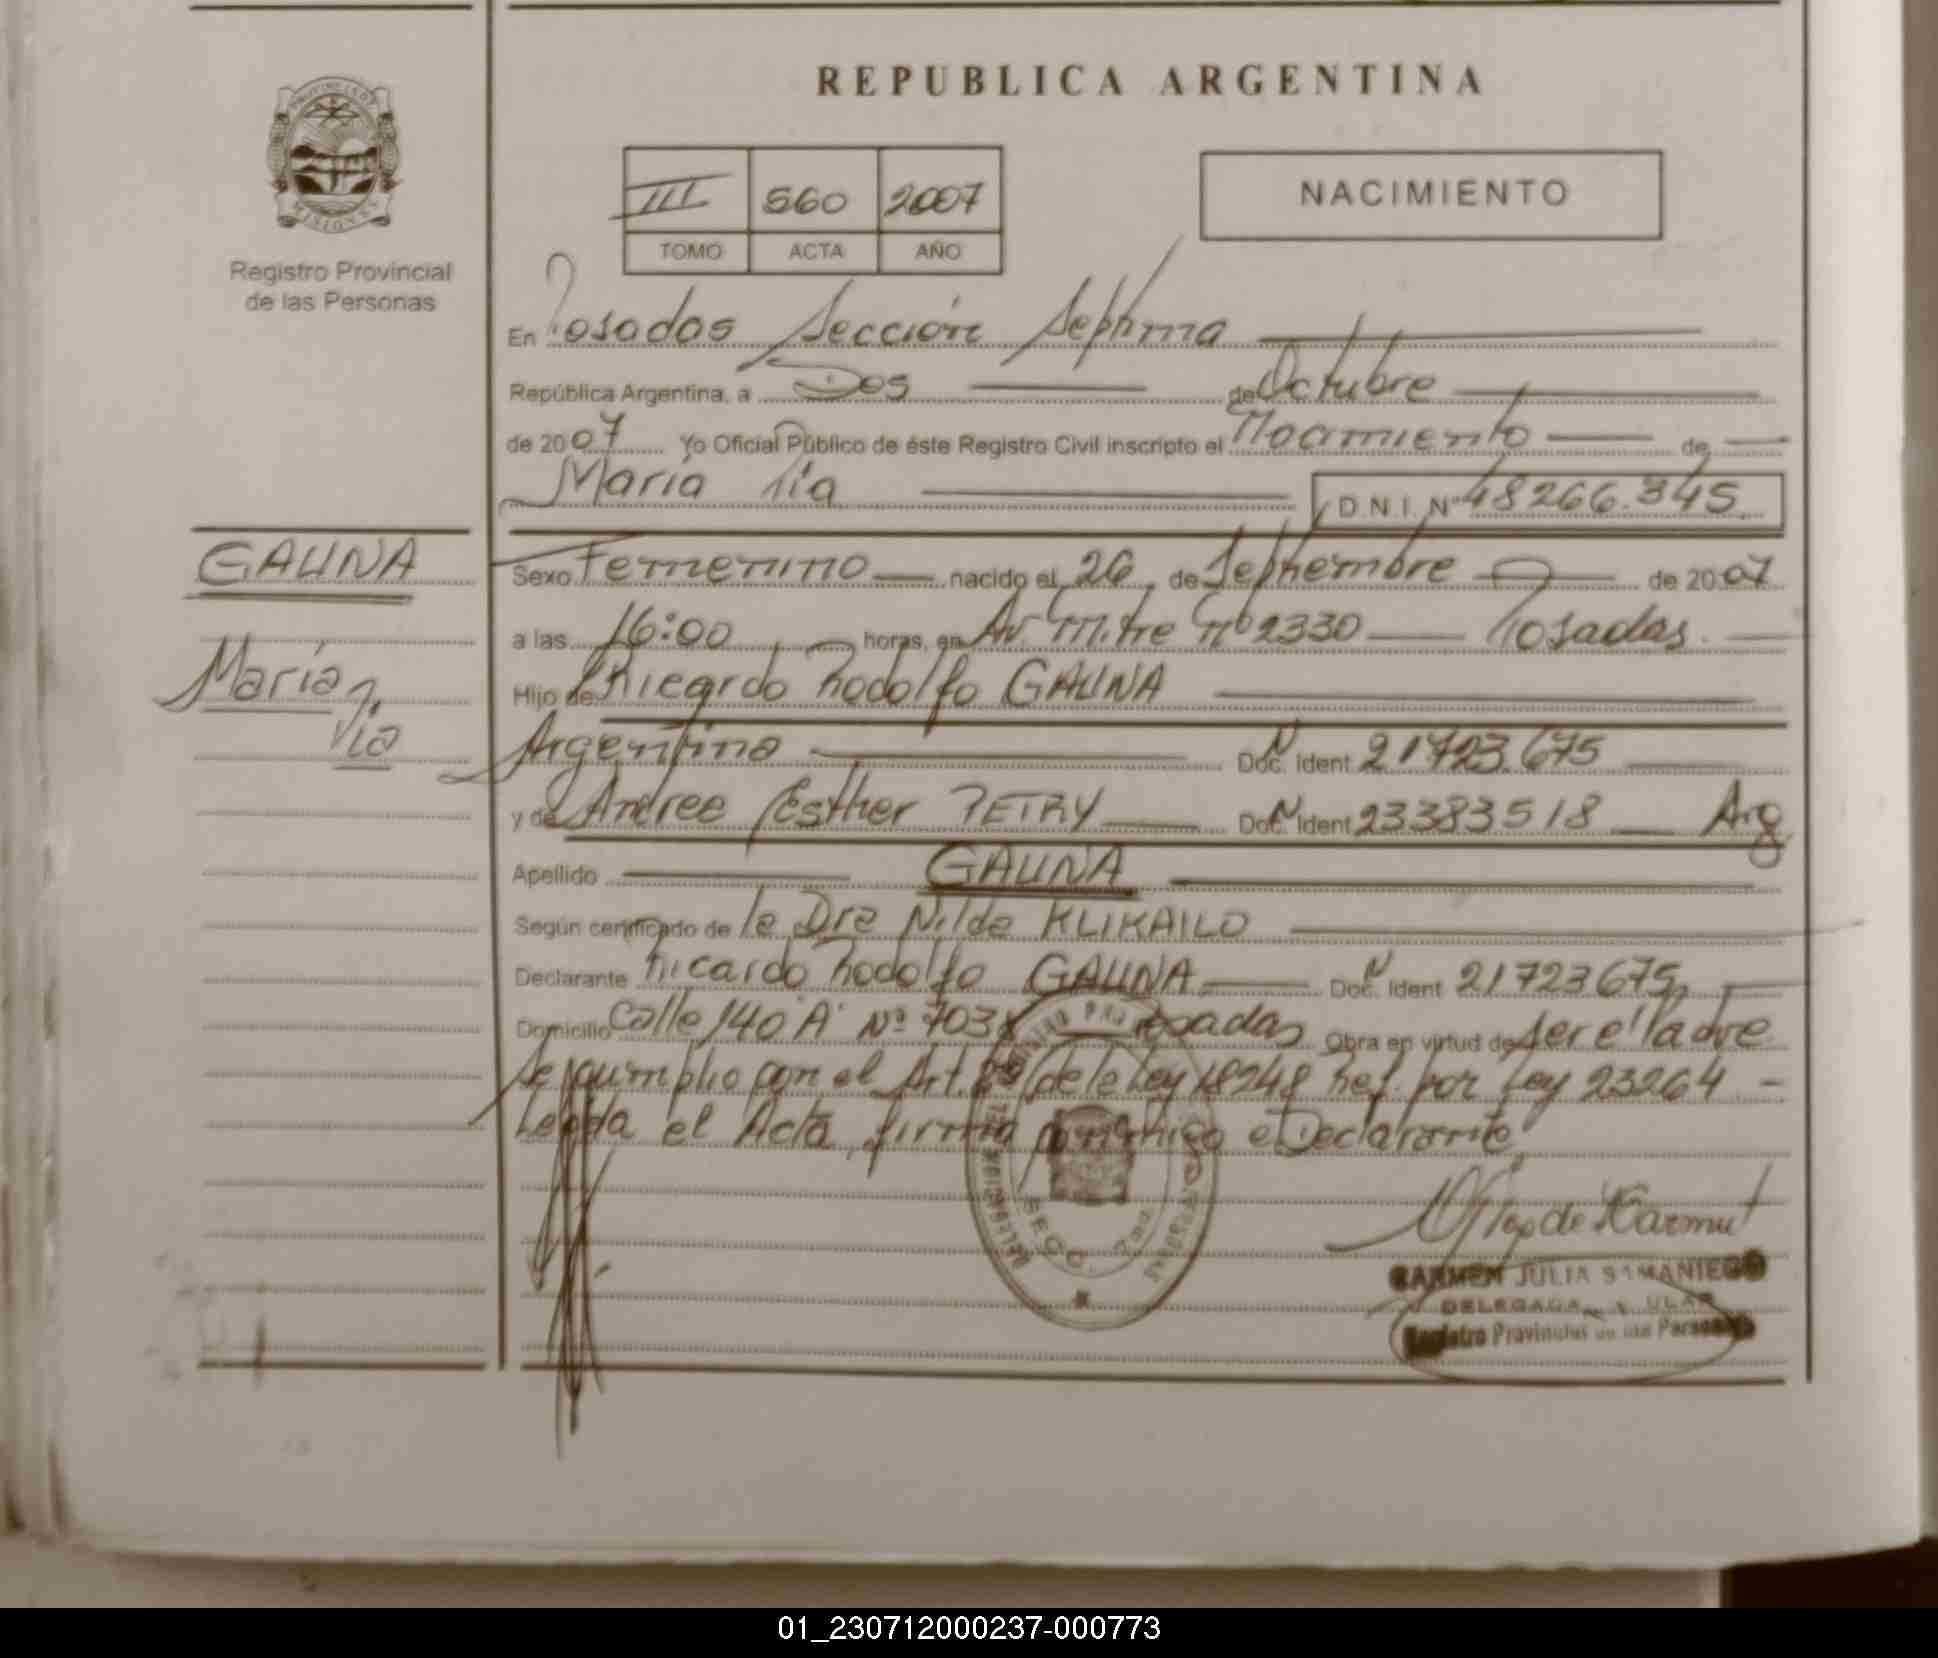 REPUBLICA ARGENTINA
PROVINCIA DE
MISIONES
Registro Provincial
de las Personas
III 560 2007
TOMO ACTA AÑO
NACIMIENTO
En Posadas Sección Septima
República Argentina, a Dos de Octubre
de 2007 Yo Oficial Público de éste Registro Civil inscripto el Nacimiento de
María Pía D.N.I. Nº 48266.345
GAUNA
María
Pía
Sexo Femenino nacido el 26 de Septiembre de 2007
a las 16:00 horas, en Av. Mitre Nº 2330 Posadas.
Hijo de Ricardo Rodolfo GAUNA
Argentino DN Doc. Ident 21723.675
y de Esther PETRY Doc. Ident 23383518 Arg
Apellido GAUNA
Según certificado de la Dra Nilda KLIKAILO
Declarante Ricardo Rodolfo GAUNA Doc. Ident 21723675
Domicilio Calle 140 "A" Nº 703 Posadas Obra en virtud de ser el Padre
Se cumplio con el Art. de la Ley 18248 Ref. por Ley 23264 -
Leida el Acta, firma conmigo el Declarante
SECC. 7ma
CARMEN JULIA SAMANIEGO
DELEGADA TITULAR
Registro Provincial de las Personas
01_230712000237-000773